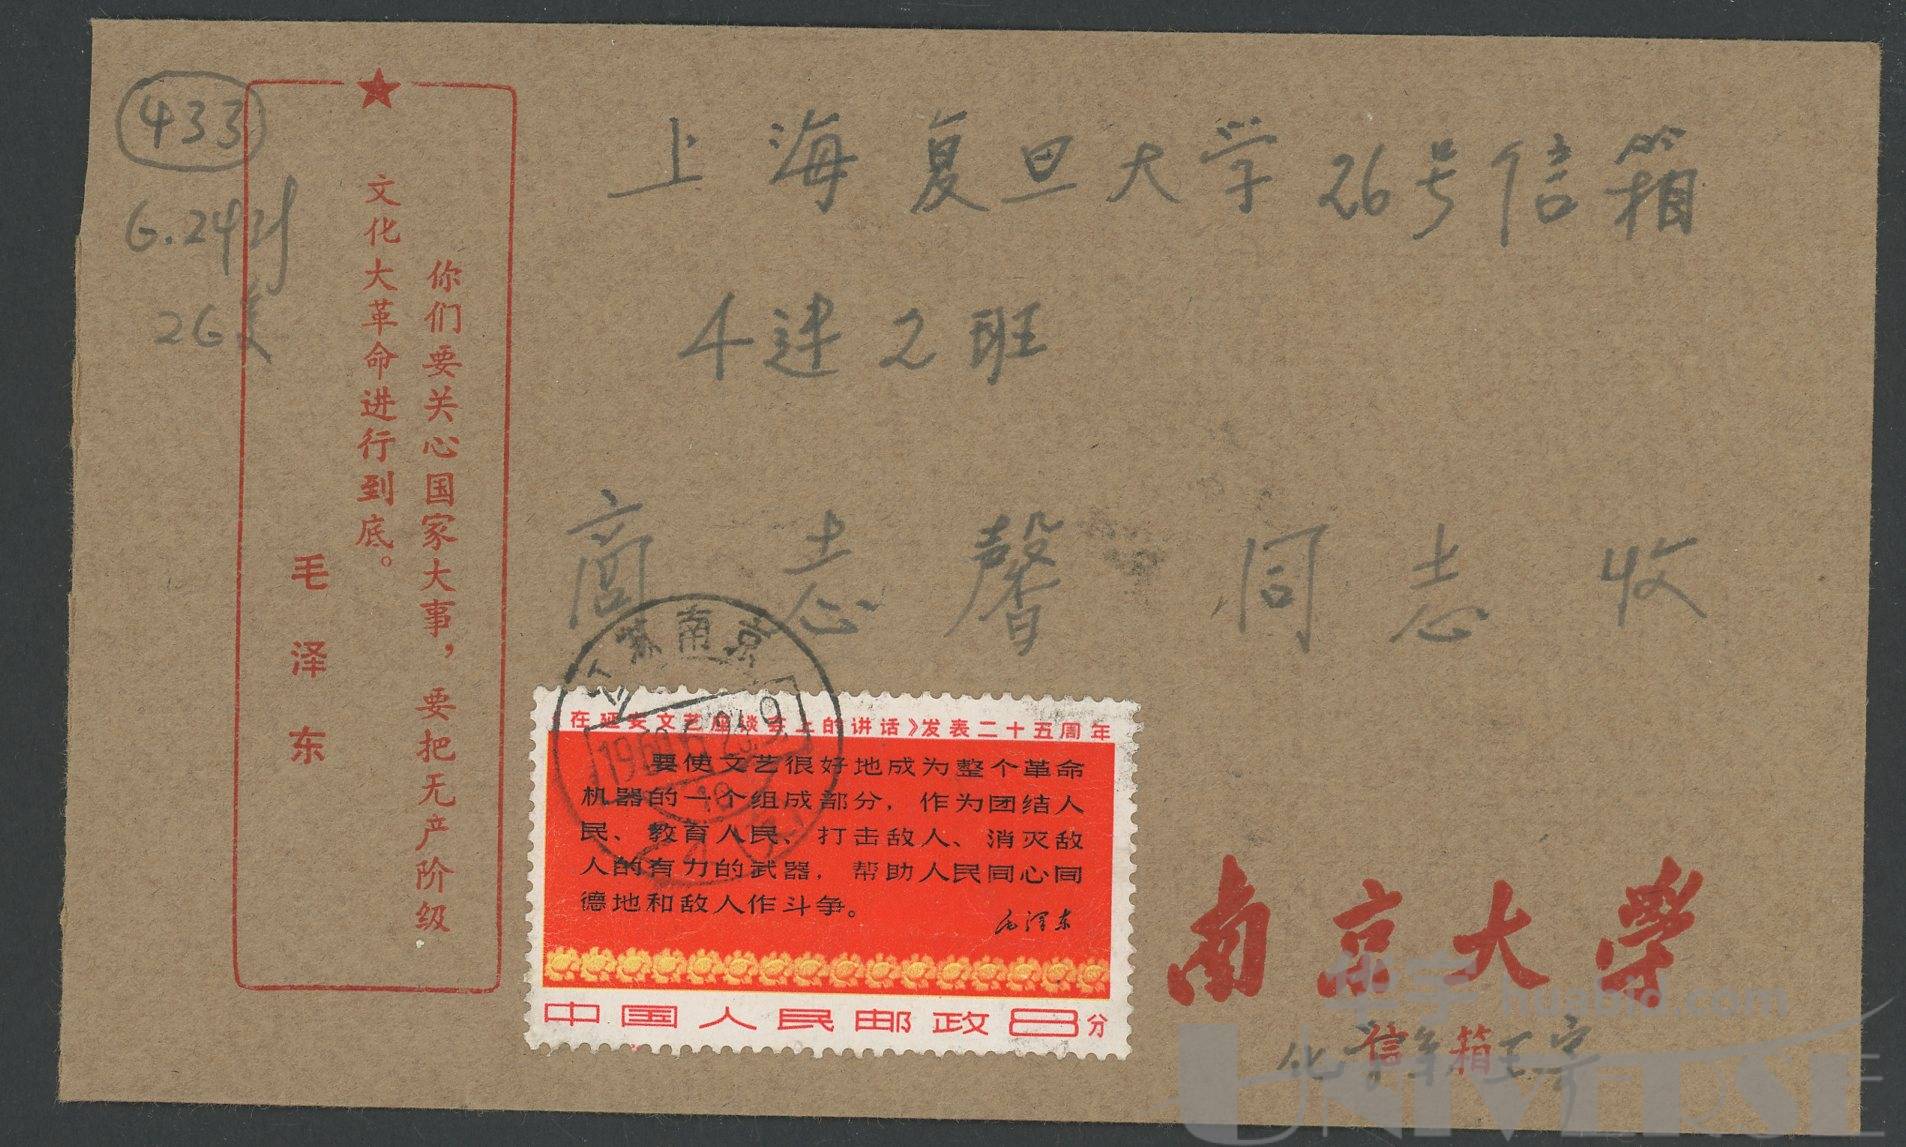 433
6.24到
26复
你们要关心国家大事，要把无产阶级
文化大革命进行到底。
毛泽东
上海复旦大学26号信箱
4连2班
高志馨同志收
江苏南京
《在延安文艺座谈会上的讲话》发表二十五周年
要使文艺很好地成为整个革命
机器的一个组成部分，作为团结人
民、教育人民、打击敌人、消灭敌
人的有力的武器，帮助人民同心同
德地和敌人作斗争。
毛泽东
中国人民邮政8分
南京大学
信箱
华宇 huabid.com
UNIVERSE